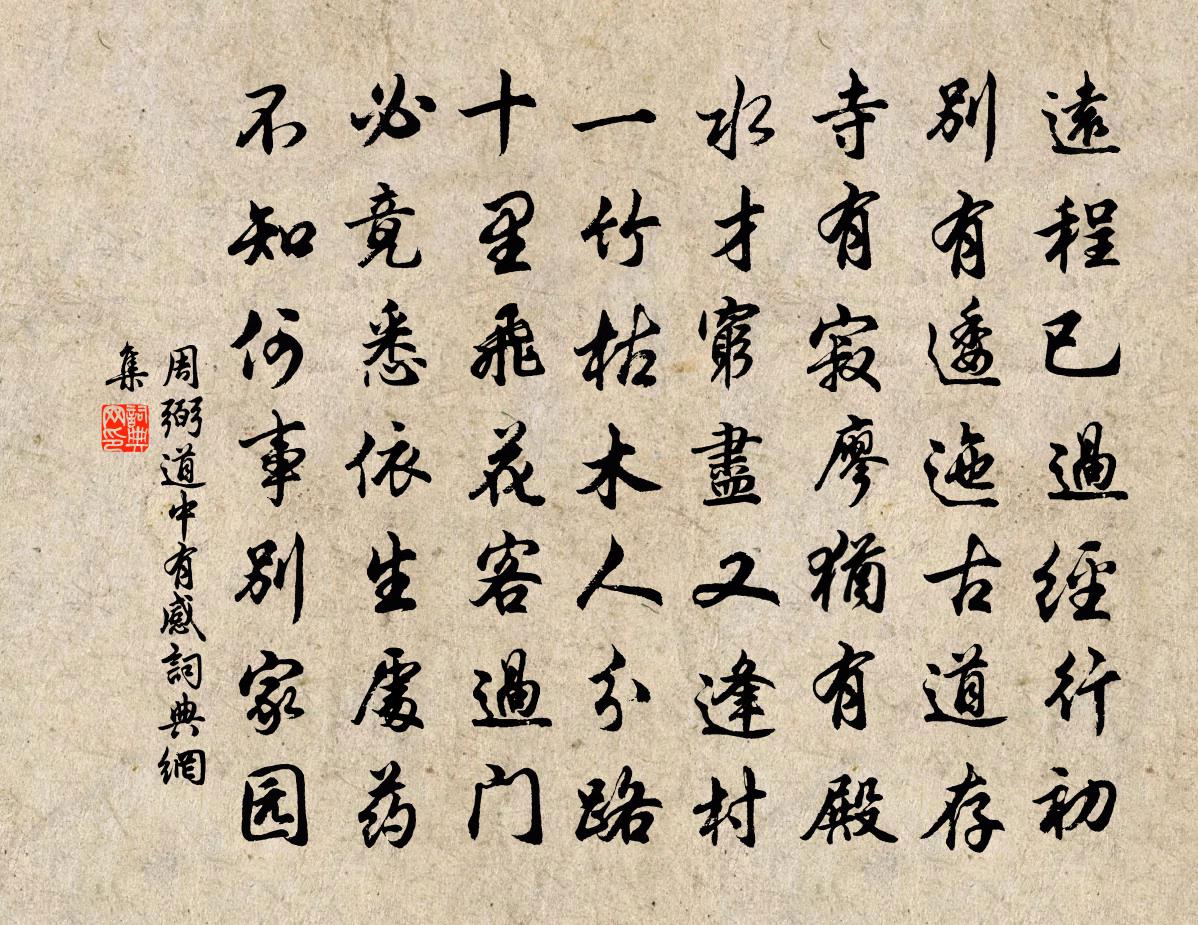 遠程已過經行初
別有逶迤古道存
寺有寂寥猶有殿
水才窮盡又逢村
一竹枯木人分路
十里飛花客過門
必竟悉依生處药
不知何事別家园
周弼道中有感詞典網
集
詞典网印